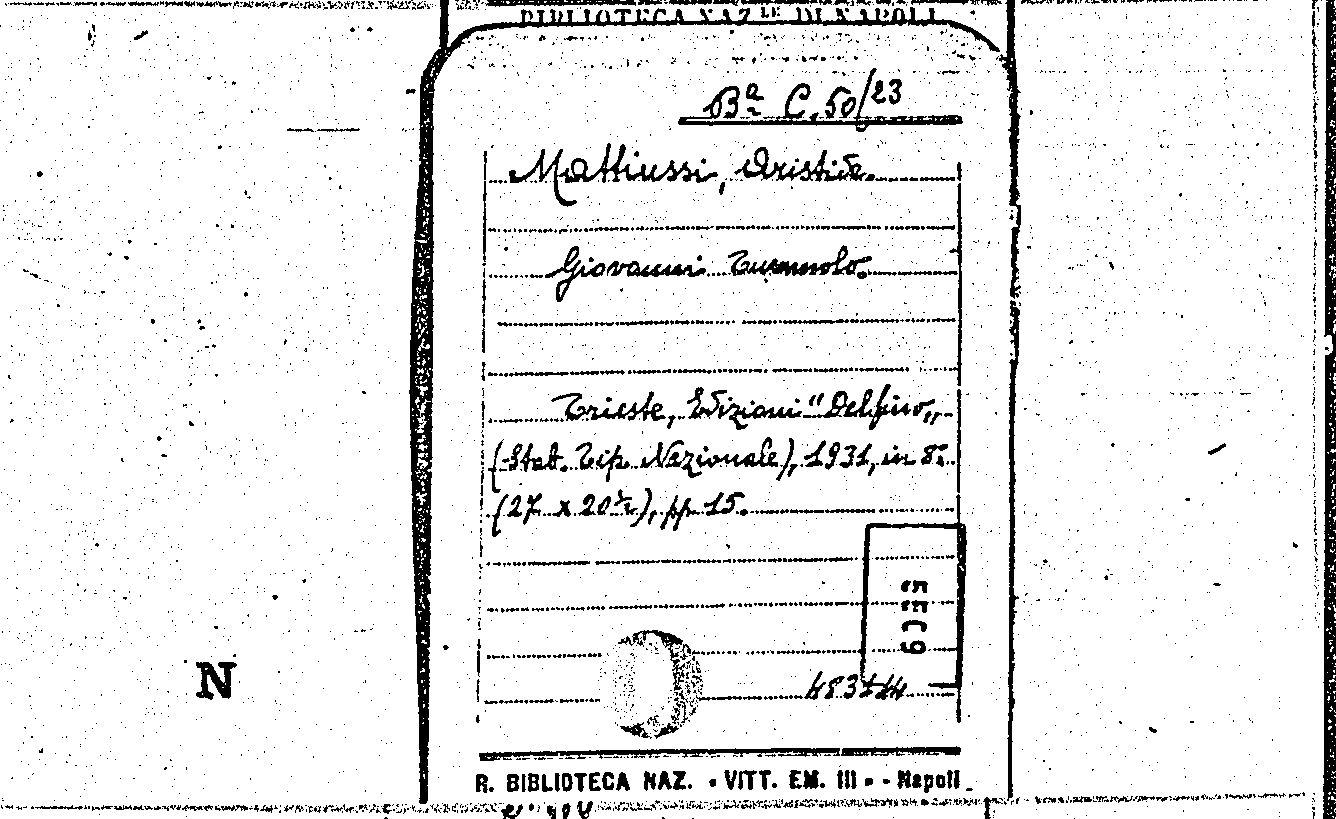 BIBLIOTECA NAZ.LE DI NAPOLI
Bª C. 50/23
Mattiussi, Aristide.
Giovanni Tummolo.
Trieste, Edizioni "Delfino„
(Stab. Tip. Nazionale), 1931, in 8º.
(27 x 20½), pp. 15.
N
R. BIBLIOTECA NAZ. • VITT. EM. III • - Napoli